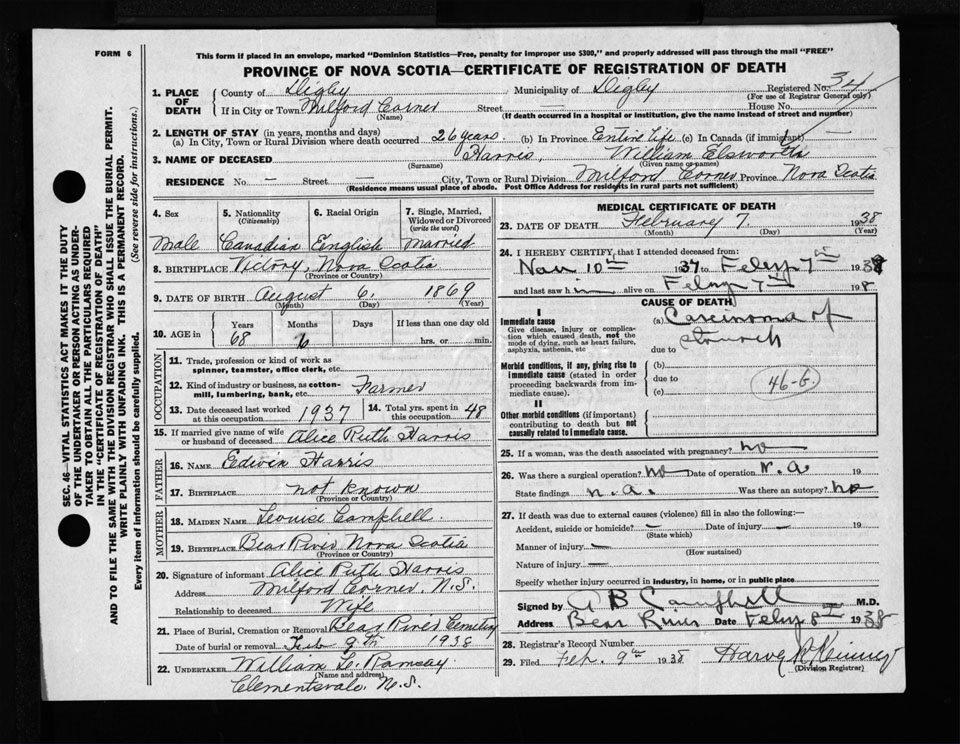 FORM 6
This form if placed in an envelope, marked "Dominion Statistics—Free, penalty for improper use $300," and properly addressed will pass through the mail "FREE"
PROVINCE OF NOVA SCOTIA—CERTIFICATE OF REGISTRATION OF DEATH
1. PLACE OF DEATH
County of Digby Municipality of Digby Registered No.
(For use of Registrar General only)
If in City or Town Milford Corner Street — House No. —
(Name) (If death occurred in a hospital or institution, give the name instead of street and number)
2. LENGTH OF STAY (in years, months and days)
(a) In City, Town or Rural Division where death occurred 26 years (b) In Province Entire Life (c) In Canada (if immigrant) —
3. NAME OF DECEASED Harris, William Elsworth
(Surname) (Given name or names)
RESIDENCE No. — Street — City, Town or Rural Division Milford Corner Province Nova Scotia
(Residence means usual place of abode. Post Office Address for residents in rural parts not sufficient)
4. Sex
Male
5. Nationality
(Citizenship)
Canadian
6. Racial Origin
English
7. Single, Married, Widowed or Divorced
(write the word)
Married
8. BIRTHPLACE Victory, Nova Scotia
(Province or Country)
9. DATE OF BIRTH August 6, 1869
(Month) (Day) (Year)
10. AGE in
Years Months Days If less than one day old
68 6 hrs. or min.
OCCUPATION
11. Trade, profession or kind of work as
spinner, teamster, office clerk, etc.
12. Kind of industry or business, as cotton-
mill, lumbering, bank, etc. Farmer
13. Date deceased last worked
at this occupation 1937
14. Total yrs. spent in
this occupation 48
15. If married give name of wife
or husband of deceased Alice Ruth Harris
FATHER
16. NAME Edwin Harris
17. BIRTHPLACE not known
(Province or Country)
MOTHER
18. MAIDEN NAME Leonise Campbell
19. BIRTHPLACE Bear River Nova Scotia
(Province or Country)
20. Signature of informant Alice Ruth Harris
Address Milford Corner, N.S.
Relationship to deceased Wife
21. Place of Burial, Cremation or Removal Bear River Cemetery
Date of burial or removal Feb 9th 1938
22. UNDERTAKER William L. Ramsay
(Name and address)
Clementsvale, N.S.
MEDICAL CERTIFICATE OF DEATH
23. DATE OF DEATH February 7, 1938
(Month) (Day) (Year)
24. I HEREBY CERTIFY, that I attended deceased from:
Nov 10th 1937 to Feby 7th 1938
and last saw him alive on Feby 7th 198
CAUSE OF DEATH
I
Immediate cause
Give disease, injury or complica-
tion which caused death, not the
mode of dying, such as heart failure,
asphyxia, asthenia, etc
(a) Carcinoma of
stomach
due to
Morbid conditions, if any, giving rise to
immediate cause (stated in order
proceeding backwards from im-
mediate cause).
(b)
due to
(c)
46-G.
II
Other morbid conditions (if important)
contributing to death but not
causally related to immediate cause.
25. If a woman, was the death associated with pregnancy? no
26. Was there a surgical operation? no Date of operation n.a 19
State findings n.a. Was there an autopsy? no
27. If death was due to external causes (violence) fill in also the following:—
Accident, suicide or homicide? — Date of injury — 19
(State which)
Manner of injury —
(How sustained)
Nature of injury —
Specify whether injury occurred in industry, in home, or in public place
Signed by A B Campbell M.D.
Address Bear River Date Feby 8th 1938
28. Registrar's Record Number
29. Filed Feb. 9th 1938 Harvey
(Division Registrar)
SEC. 46—VITAL STATISTICS ACT MAKES IT THE DUTY
OF THE UNDERTAKER OR PERSON ACTING AS UNDER-
TAKER TO OBTAIN ALL THE PARTICULARS REQUIRED
IN THE "CERTIFICATE OF REGISTRATION OF DEATH"
AND TO FILE THE SAME WITH THE DIVISION REGISTRAR WHO SHALL ISSUE THE BURIAL PERMIT.
WRITE PLAINLY WITH UNFADING INK. THIS IS A PERMANENT RECORD.
Every item of information should be carefully supplied. (See reverse side for instructions.)